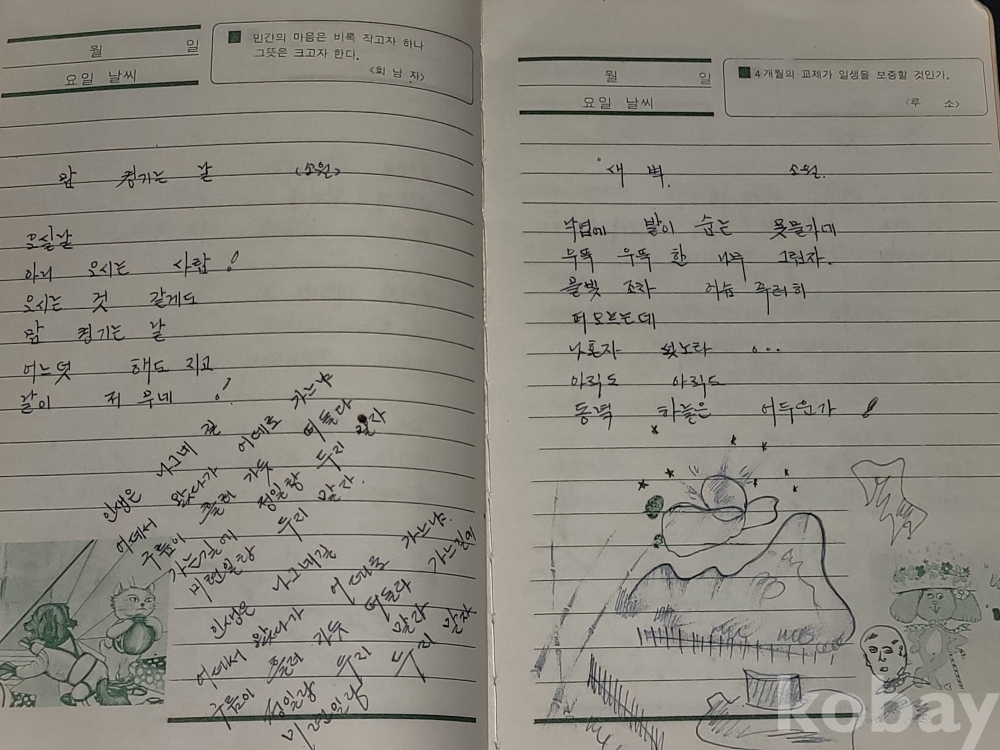 월 일
요일 날씨
민간의 마음은 비록 작고자 하나
그뜻은 크고자 한다.
<회 남 자>
맘 켱기는 날 (소월)
오실날
아니 오시는 사람!
오시는 것 같게도
맘 켱기는 날
어느덧 해도 지고
날이 저무네!
인생은 나그네 길
어데서 왔다가 어데로 가느냐
구름이 흘러 가듯 떠돌다
가는길에 정일랑 두지 말자
미련일랑 두지 말자.
인생은 나그네길
어데서 왔다가 어데로 가느냐.
구름이 흘러 가듯 떠돌다 가는길에
정일랑 두지 말자
미련일랑 두지 말자
월 일
요일 날씨
4개월의 교제가 일생을 보증할 것인가.
<루 소>
새 벽. 소월.
낙엽에 발이 숨는 못물가에
우뚝 우뚝 한 나무 그림자.
물빛 조차 어슴 푸러히
떠오르는데
나혼자 섯노라 ...
아직도 아직도
동녁 하늘은 어두운가!
kobay